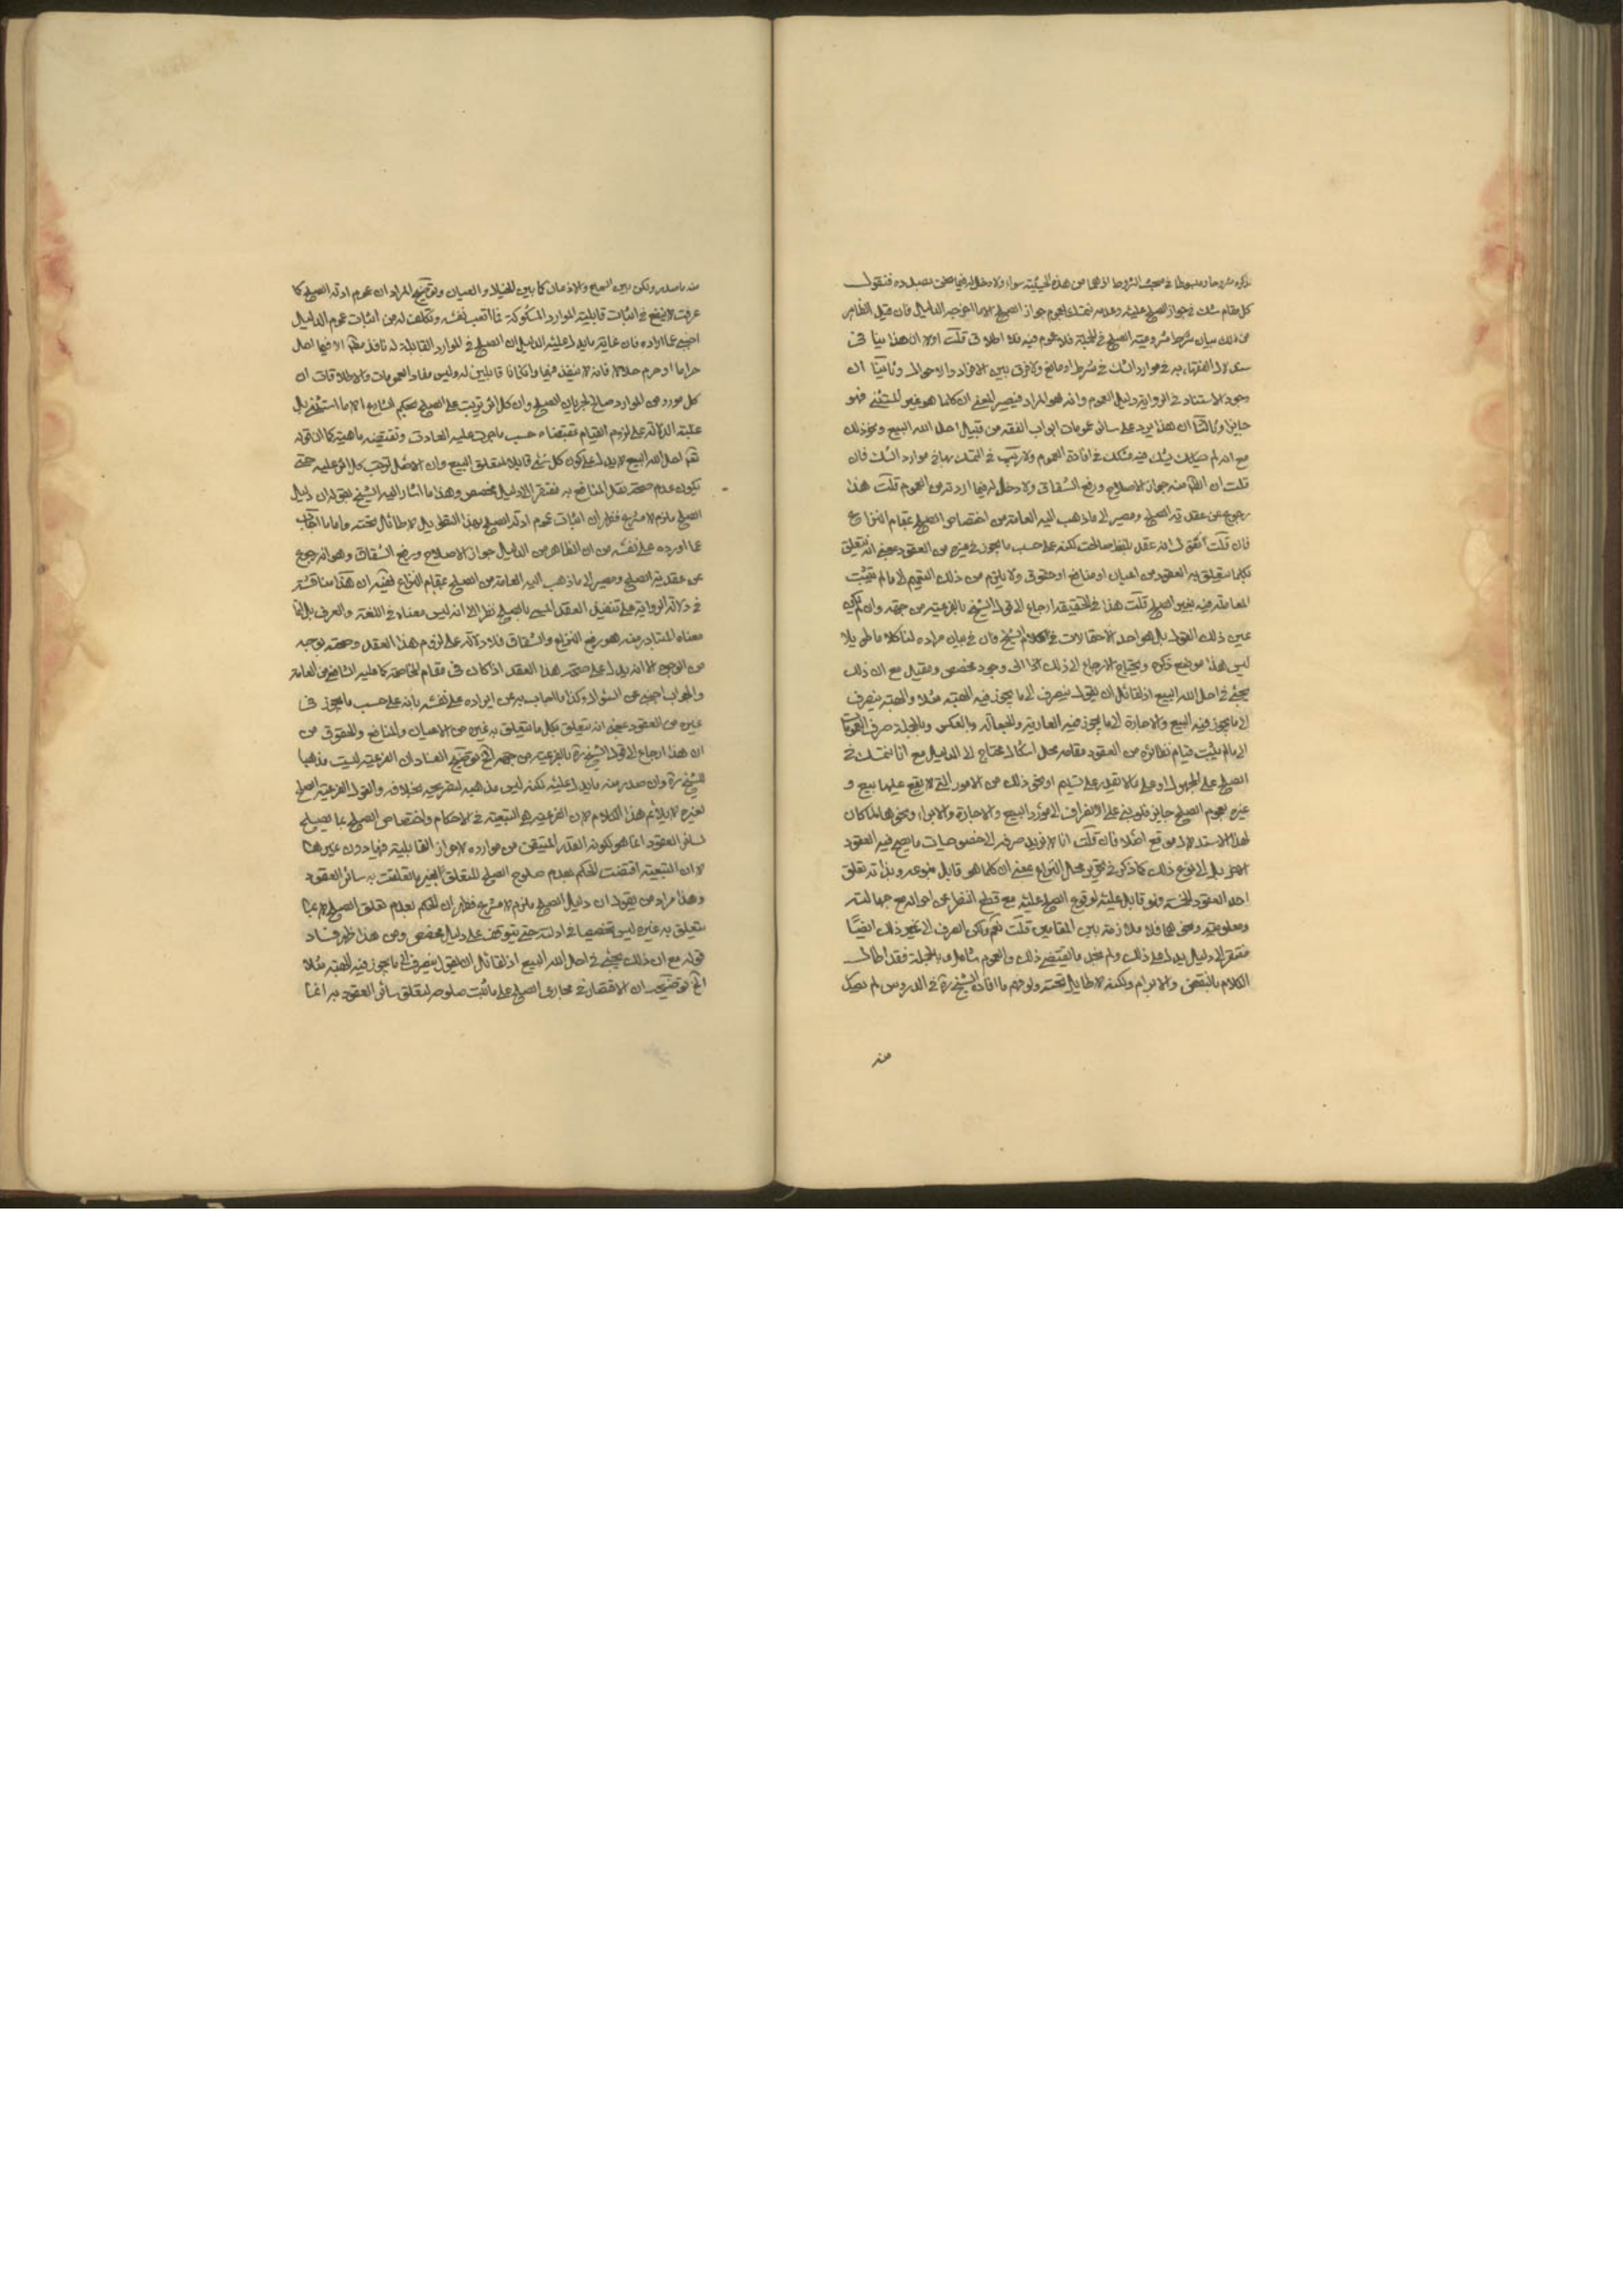 ذكره مشروحا ومبسوطا في مبحث الشروط اذ هما من هذه الحيثية سواء ولا دخل له فيما نحن بصدده فنقول
كل مقام شك في جواز الصلح عليه وعدمه نتمسك بعموم جواز الصلح الا ما اخرجه الدليل فان قيل الظاهر
من ذلك بيان شرط مشروعية الصلح في الجملة فلا عموم فيه ولا اطلاق قلت اولا ان هذا ينافي
استدلال الفقهاء به في موارد الشك في شرط او مانع ولا فرق بين الافراد والاحوال وثانيا ان
وجود الاستثناء في الرواية دليل العموم وانه هو المراد فيصير المعنى ان كلما هو غير المستثنى فهو
جايز وثالثا ان هذا يرد على سائر عمومات ابواب الفقه من قبيل احل الله البيع ونحو ذلك
مع انه لم يشك فيه في افادة العموم ولا ريب في التمسك بها في موارد الشك فان
قلت ان الظاهر منه جواز الاصلاح ورفع الشقاق ولا دخل له فيما اردته من العموم قلت هذا
رجوع عن عقدية الصلح ومصير الى ما ذهب اليه العامة من اختصاص الصلح بمقام النزاع
فان قلت انه عقد بلفظ صالحت لكنه على حسب ما يجوز في غيره من العقود بمعنى انه يتعلق
بكلما يتعلق به العقود من اعيان او منافع او حقوق ولا يلزم من ذلك التعميم الى ما لم يثبت
المعاملة فيه بغير الصلح قلت هذا في الحقيقة ارجاع الى قول الشيخ بالفرعية من جهة وان لم يكن
عين ذلك القول بل هو احد الاحتمالات في كلام الشيخ وان في بيان مراده لنا كلاما طويلا
ليس هذا موضع ذكره ويحتاج الارجاع الى ذلك الى وجود مخصص ومقيد مع ان ذلك
يجئ في احل الله البيع اذ لقائل ان يقول ينصرف الى ما يجوز فيه الهبة مثلا والهبة ينصرف
الى ما يجوز فيه البيع والاجارة الى ما يجوز فيه العارية والجعالة وبالعكس وبالجملة صرف العمومات
الى ما لم يثبت قيام نظائره من العقود مقامه محل اشكال محتاج الى الدليل مع انا نتمسك في
الصلح على المجهول وعلى ما لا يقدر على تسليم او نحو ذلك من الامور التي لا يقع عليها بيع و
غيره بعموم الصلح جايز فلو بنى على الانصراف الى مورد البيع والاجارة والابراء ونحوها لما كان
لهذا الاستدلال موقع اصلا فان قلت انا لا نريد صرفه الى خصوصيات ما يصح فيه العقود
الاخر بل الى نوع ذلك كما ذكر في تحرير محل النزاع بمعنى ان كلما هو قابل بنوعه وبذاته تعلق
احد العقود الخمسة فهو قابل عليه لوقوع الصلح عليه مع قطع النظر عن احواله مع جهالته
ومعلوميته ونحوهما فلا ملازمة بين المقامين قلت نعم ولكن الصرف الى غير ذلك ايضا
مفتقر الى دليل يدل على ذلك ولم نجد ما يقتضى ذلك والعموم شامل وبالجملة فقد اطال
الكلام بالنقض والابرام ولكنه لا طايل تحته ولو فهم ما افاده الشيخ ره في الدروس لم يصدر
منه
منه ما صدر ولكن بين السماع والاذعان كما بين الخيال والعيان وتوضيح المراد ان عموم ادلة الصلح كما
عرفت لا ينفع في اثبات قابلية الموارد المشكوكة فما اتعب نفسه وتكلف له من اثبات عموم الدليل
اجنبى عما اراده فان غاية ما يدل عليه الدليل ان الصلح في الموارد القابلة له نافذ مطلقا الا فيما احل
حراما او حرم حلالا فانه لا ينفذ فيها وان كانا قابلين له وليس مفاد العمومات والاطلاقات ان
كل مورد من الموارد صالح لجريان الصلح وان كل اثر ترتب على الصلح بحكم الشارع الا ما استثنى بل
غايته الدلالة على لزوم القيام بمقتضاه حسب ما جرت عليه العادة وتقتضيه ماهيته كما ان قوله
تعالى احل الله البيع لا يدل على كون كل شئ قابلا لتعلق البيع وان الاصل ترتب كل اثر عليه حتى
يكون عدم صحة نقل المنافع به مفتقرا الى دليل مخصص وهذا ما اشار اليه الشيخ بقوله ان دليل
الصلح ملزم لا مشرع فظهر ان اثبات عموم ادلة الصلح بهذا التطويل لا طائل تحته واما ما اجاب
عما اورده على نفسه من ان الظاهر من الدليل جواز الاصلاح ورفع الشقاق وهو انه رجوع
عن عقدية الصلح ومصير الى ما ذهب اليه العامة من الصلح بمقام النزاع ففيه ان هذا مناقشة
في دلالة الرواية على تنفيذ العقد المسمى بالصلح نظرا الى انه ليس معناه في اللغة والعرف بل انما
معناه المتبادر منه هو رفع النزاع والشقاق فلا دلالة على لزوم هذا العقد وصحته بوجه
من الوجوه الا انه يدل على صحة هذا العقد اذا كان في مقام المخاصمة كما عليه الشافعي من العامة
والجواب اجنبى عن السؤال وكذا ما اجاب به عن ايراده على نفسه بانه على حسب ما يجوز في
غيره من العقود بمعنى انه يتعلق بكل ما يتعلق به غيره من الاعيان والمنافع والحقوق من
ان هذا ارجاع الى قول الشيخ ره بالفرعية من جهة الخ توضيح الفساد ان الفرعية ليست مذهبا
للشيخ ره وان صدر منه ما يدل عليه لكنه ليس مذهبه لتصريحه بخلافه والقول بفرعية الصلح
لغيره لا يلائم هذا الكلام لان الفرعية هي التبعية في الاحكام واختصاص الصلح بما يصلح
لسائر العقود انما هو لكونه القدر المتيقن من موارده لاحراز القابلية فيها دون غيرها
لا ان التبعية اقتضت الحكم بعدم صلوح الصلح للتعلق بغير ما تعلقت به سائر العقود
وهذا مراد من يقول ان دليل الصلح ملزم لا مشرع فظهر ان الحكم بعدم تعلق الصلح الا بما
يتعلق به غيره ليس تخصيصا في ادلته حتى يتوقف على دليل مخصص ومن هذا ظهر فساد
قوله مع ان ذلك يجئ في احل الله البيع اذ لقائل ان يقول ينصرف الى ما يجوز فيه الهبة مثلا
الخ توضيحه ان الاقتصار في مجارى الصلح على ما ثبت صلوحه لتعلق سائر العقود به انما